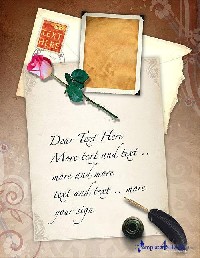 TEXT
HERE
Dear Text Here
More text and text ..
more and more
text and text .. more
your sign